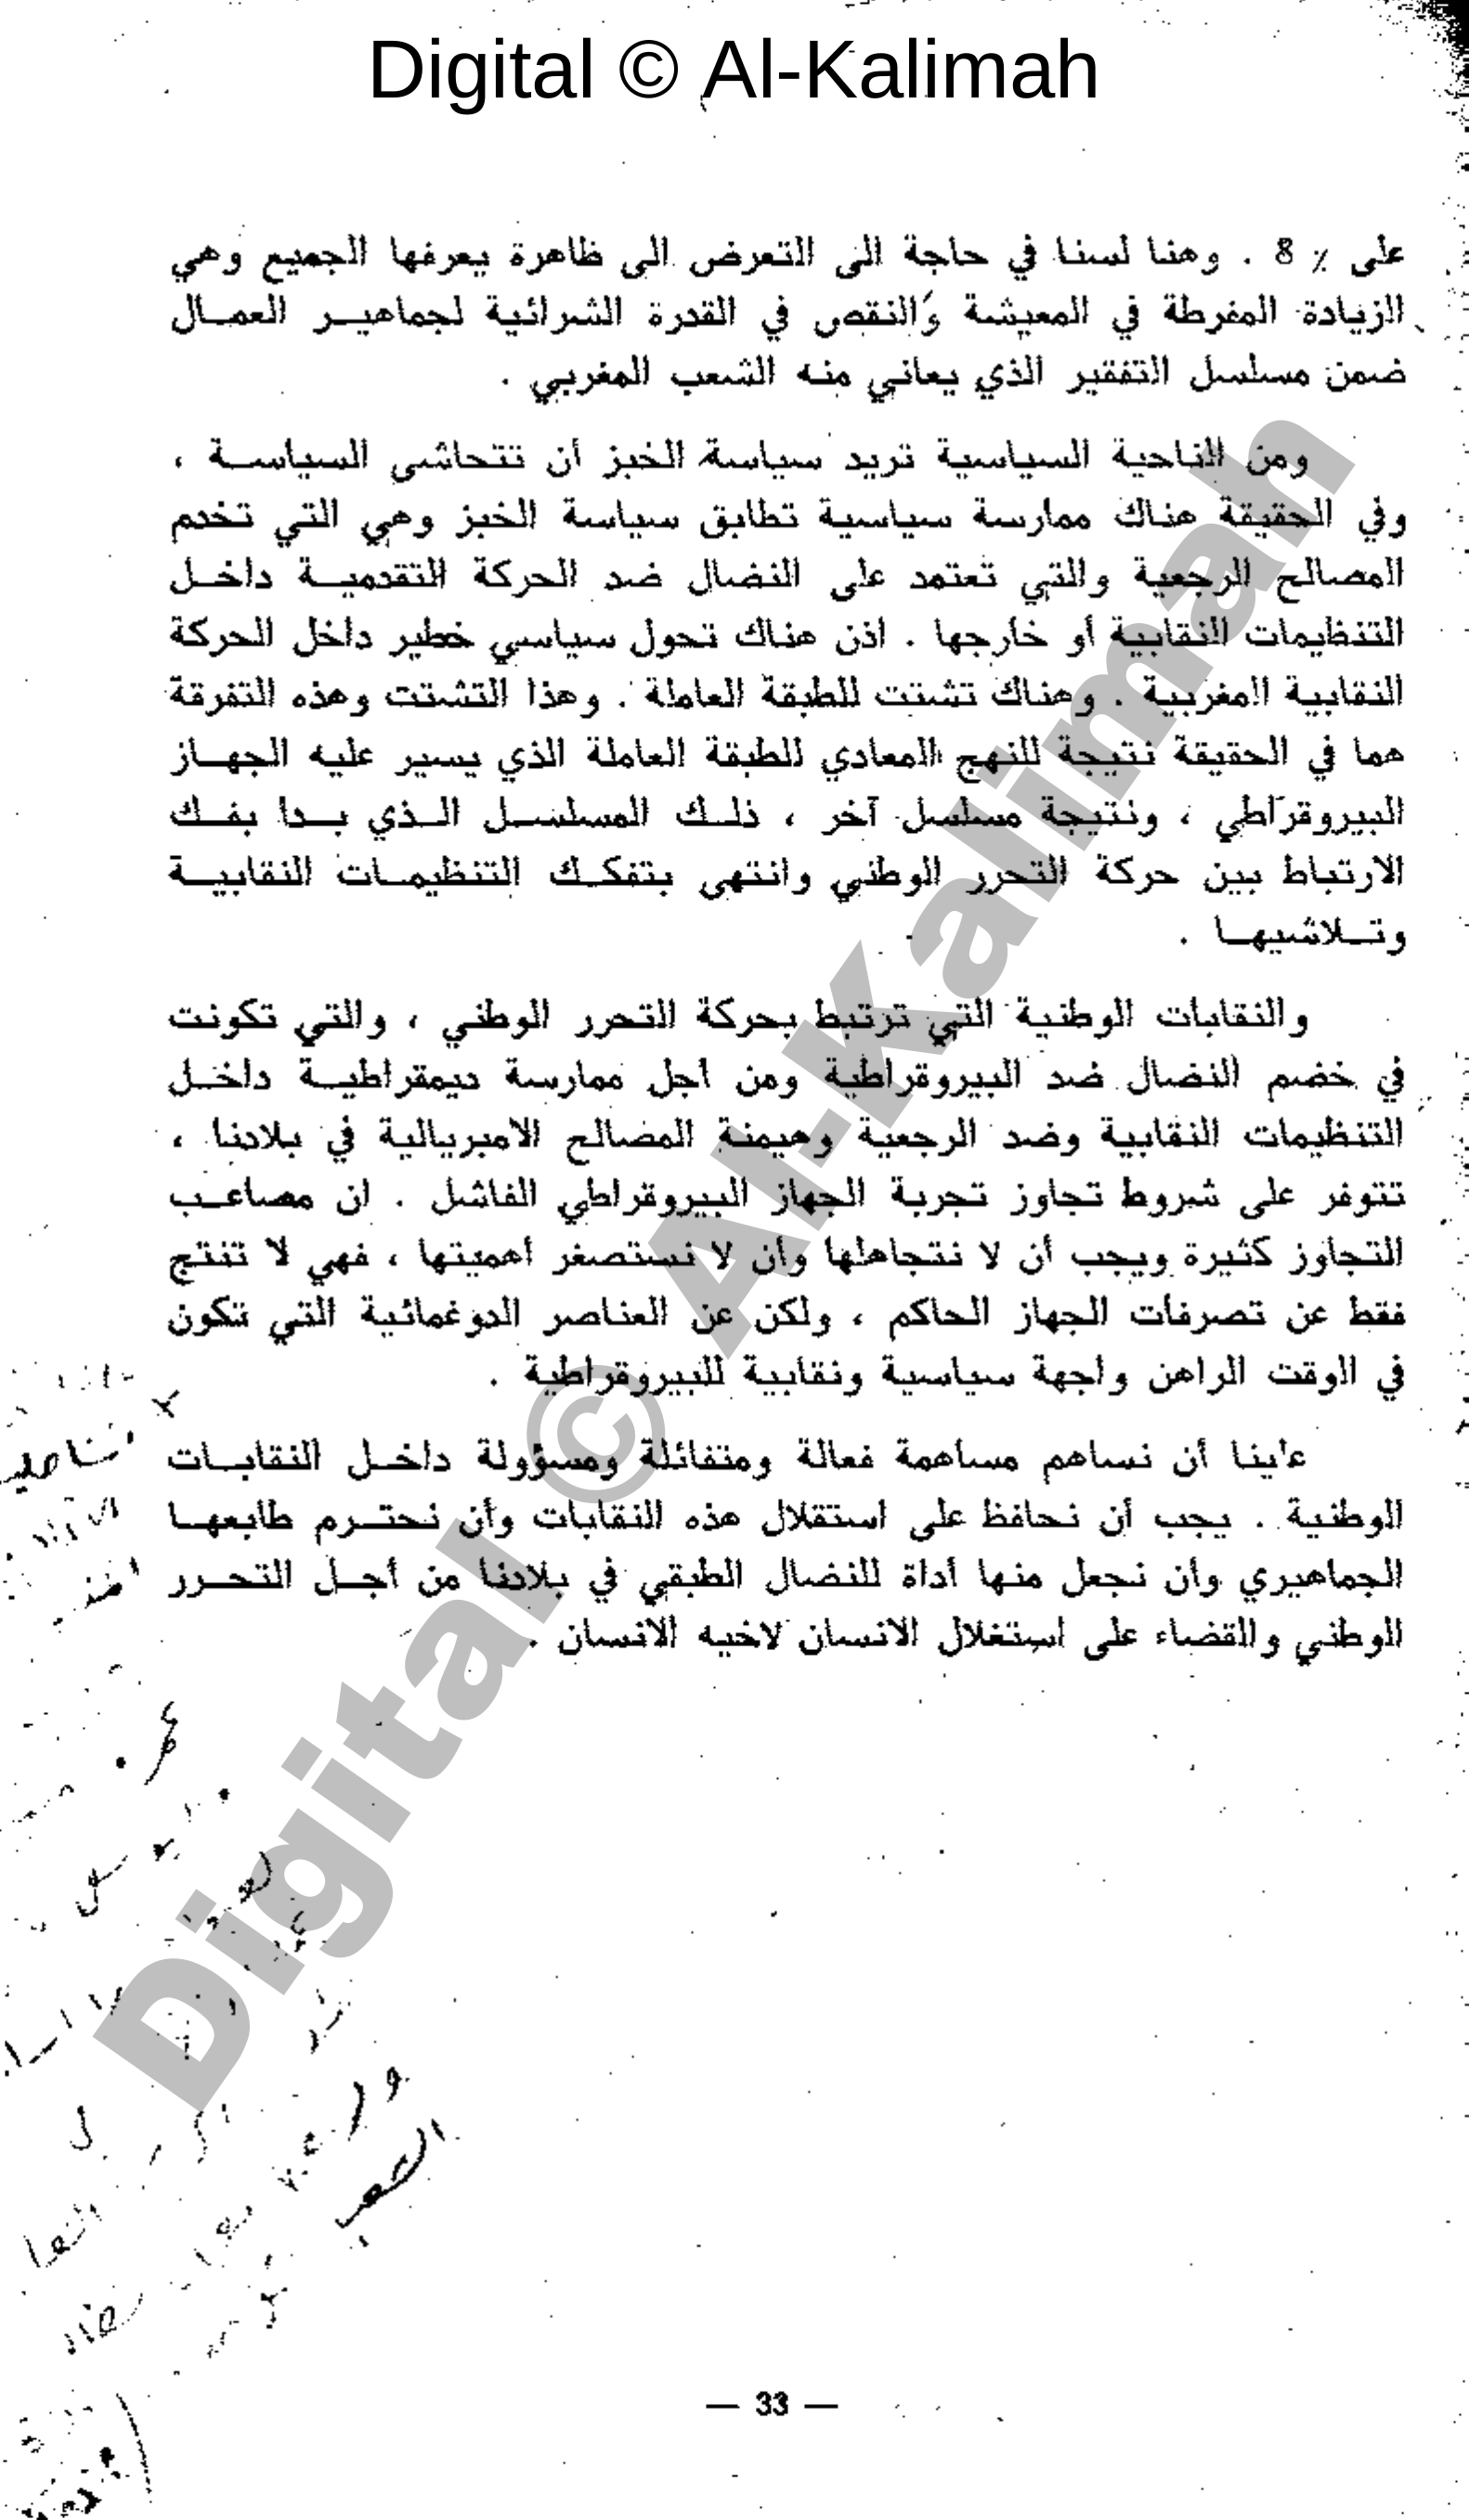 Digital © Al-Kalimah
على ٪ 8 . وهنا لسنا في حاجة الى التعرض الى ظاهرة يعرفها الجميع وهي
الزيادة المفرطة في المعيشة والنقص في القدرة الشرائية لجماهيــر العمــال
ضمن مسلسل التفقير الذي يعاني منه الشعب المغربي .
ومن الناحية السياسية تريد سياسة الخبز أن تتحاشى السياســة ،
وفي الحقيقة هناك ممارسة سياسية تطابق سياسة الخبز وهي التي تخدم
المصالح الرجعية والتي تعتمد على النضال ضد الحركة التقدميــة داخــل
التنظيمات النقابية أو خارجها . اذن هناك تحول سياسي خطير داخل الحركة
النقابية المغربية . وهناك تشتت للطبقة العاملة . وهذا التشتت وهذه التفرقة
هما في الحقيقة نتيجة للنهج المعادي للطبقة العاملة الذي يسير عليه الجهــاز
البيروقراطي ، ونتيجة مسلسل آخر ، ذلــك المسلســل الــذي بــدا بفــك
الارتباط بين حركة التحرر الوطني وانتهى بتفكــك التنظيمــات النقابيــة
وتــلاشيهــا .
والنقابات الوطنية التي ترتبط بحركة التحرر الوطني ، والتي تكونت
في خضم النضال ضد البيروقراطية ومن اجل ممارسة ديمقراطيــة داخــل
التنظيمات النقابية وضد الرجعية وهيمنة المصالح الامبريالية في بلادنا ،
تتوفر على شروط تجاوز تجربة الجهاز البيروقراطي الفاشل . ان مصاعــب
التجاوز كثيرة ويجب أن لا نتجاهلها وأن لا نستصغر أهميتها ، فهي لا تنتج
فقط عن تصرفات الجهاز الحاكم ، ولكن عن العناصر الدوغمائية التي تتكون
في الوقت الراهن واجهة سياسية ونقابية للبيروقراطية .
علينا أن نساهم مساهمة فعالة ومتفائلة ومسؤولة داخــل النقابــات
الوطنية . يجب أن نحافظ على استقلال هذه النقابات وأن نحتــرم طابعهــا
الجماهيري وأن نجعل منها أداة للنضال الطبقي في بلادنا من أجــل التحــرر
الوطني والقضاء على استغلال الانسان لاخيه الانسان .
— 33 —
Digital © Al-Kalimah